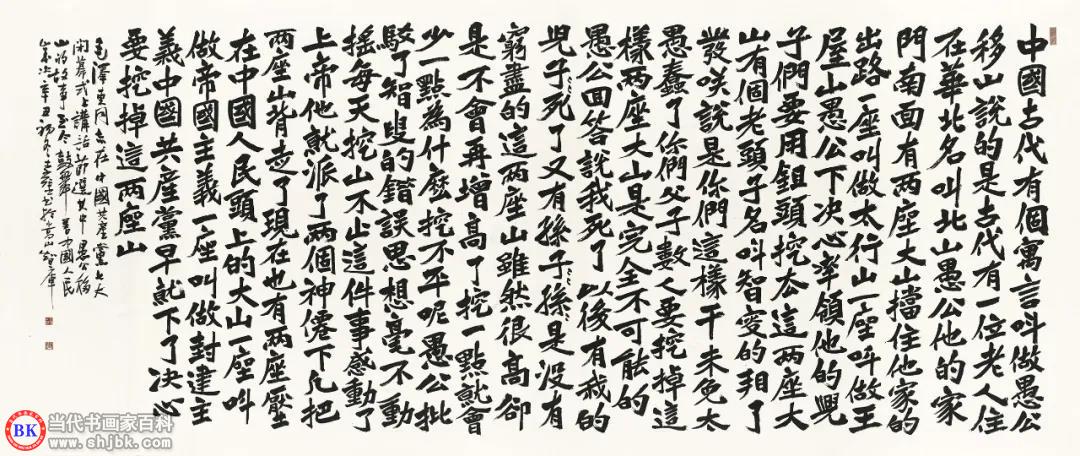 中國古代有個寓言叫做愚公
移山說的是古代有一位老人住
在華北名叫北山愚公他的家
門南面有兩座大山擋住他家的
出路一座叫做太行山一座叫做王
屋山愚公下决心率領他的兒
子們要用鉏頭挖去這兩座大
山有個老頭子名叫智叟的了
發咲說是你們這樣干未免太
愚蠢了你們父子數人要挖掉這
樣兩座大山是完全不可能的
愚公回答說我死了以後有我的
兒子〻死了又有孫子〻孫〻是沒有
窮盡的這兩座山雖然很高卻
是不會再增高了挖一點就會
少一點為什麽挖不平呢愚公批
駁了智叟的錯誤思想毫不動
搖每天挖山不止這件事感動了
上帝他就派了兩個神僊下凡把
兩座山背走了現在也有兩座壓
在中國人民頭上的大山一座叫
做帝國主義一座叫做封建主
義中國共產黨早就下了决心
要挖掉這兩座山
毛澤東同志在中國共產黨七大
閉幕式上講話節選其中愚公移
山的故事至今鼓舞著中國人民
辛丑初冬
BK
当代书画家百科
www.shjbk.com